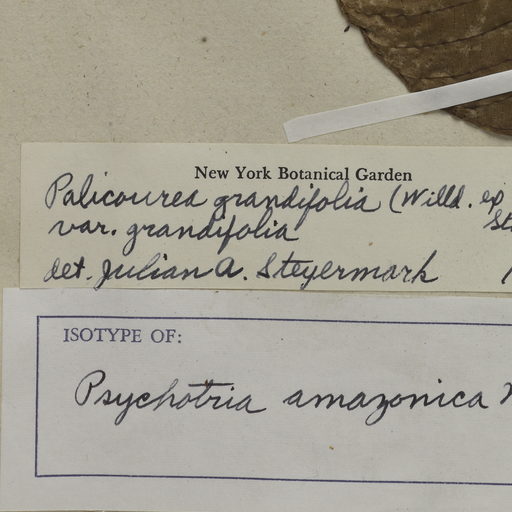 New York Botanical Garden
Palicourea grandifolia (Willd. ex
var. grandifolia
det. Julian A. Steyermark
ISOTYPE OF:
Psychotria amazonica